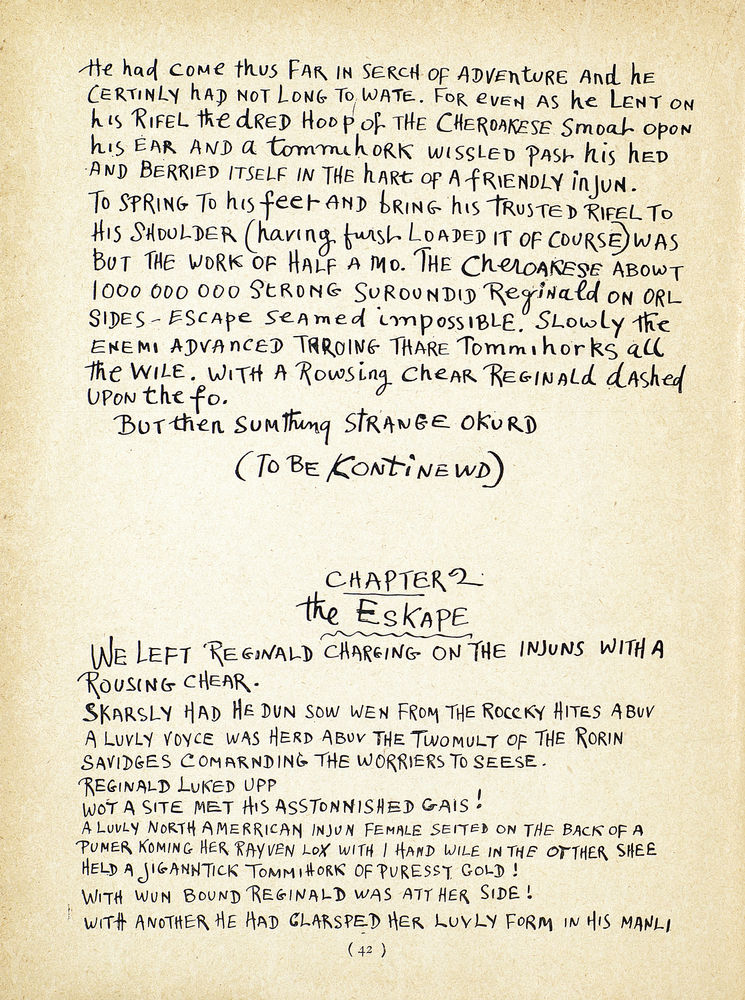 He had come thus FAR IN SERCH OF ADVENTURE And hE
CERTINLY hAD NOT LONG TO WATE. FOR even AS he LENT ON
his RIFEL the dRED HOOP of THE CHEROAKESE Smoat OPON
his EAR AND a tommihORK WISSLED PAST his hED
AND BERRIED ITSELF IN THE hART OF A fRIENDLY inJUN.
To SPRING TO his feet AND bRING his TRUSTED RIFEL TO
HIS SHOULDER (having furst LOADED IT OF COURSE) WAS
BUT THE WORK OF HALF A MO. THE CheROAKESE ABOWT
1000 000 000 STRONG SUROUNDID Reginald ON ORL
SIDES - ESCApe Seamed impOSSIBLE. SLOwly the
ENEMI ADVANCED THROING THARE Tommihorks all
the WILE. WITH A Rowsing CheAR REGINALd dAShed
UPON the fo.
BUT then SUMThing STRANGE OKURD
(TO BE KONTINEWD)
CHAPTER 2
the ESKAPE
WE LEFT REGINALD CHARGING ON THE INJUNS WITH A
ROUSING CHEAR.
SKARSLY HAD HE DUN SOW WEN FROM THE ROCCKY HITES ABUV
A LUVLY VOYCE WAS HERD ABUV THE TWOMULT OF THE RORIN
SAVIDGES COMARNDING THE WORRIERS TO SEESE.
REGINALD LUKED UPP
WOT A SITE MET HIS ASSTONNISHED GAIS!
A LUVLY NORTH AMERRICAN INJUN FEMALE SEITED ON THE BACK OF A
PUMER KOMING HER RAYVEN LOX WITH 1 HAND WILE IN THE OTTHER SHEE
HELD A JIGANNTICK TOMMIHORK OF PURESST GOLD!
WITH WUN BOUND REGINALD WAS ATT HER SIDE!
WITH ANOTHER HE HAD CLARSPED HER LUVLY FORM IN HIS MANLI
(42)